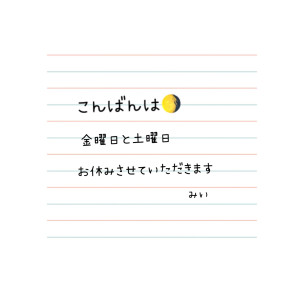 こんばんは
金曜日と土曜日
お休みさせていただきます
みい